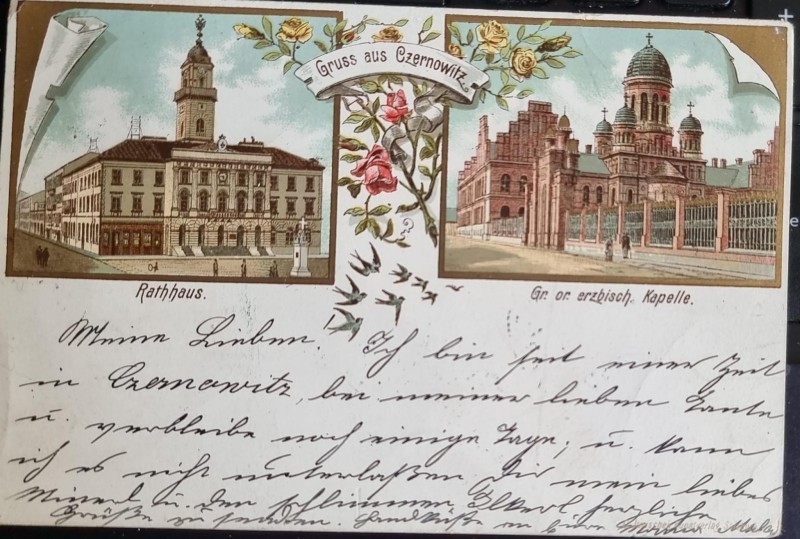 Gruss aus Czernowitz.
Rathhaus.
Gr. or. erzbisch. Kapelle.
Meine Lieben. Ich bin seit einer Zeit
in Czernowitz, bei meiner lieben Tante
u. verbleibe noch einige Tage; u. kann
ich es nicht unterlaßen Dir mein liebes
u. den schlimmen herzliche
Grüße zu senden. Handküße an Mala